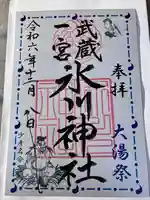 奉拝
大湯祭
武蔵
一宮
氷川神社
令和六年十二月
八日